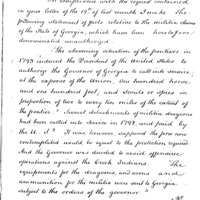 In compliance with the request contained
in your letter of the 19th of last month I make the
following statement of facts relative to the militia claims
of the State of Georgia, which have been heretofore
denominated unauthorized.
"The alarming situation of the frontiers in
1793 induced the President of the United States to
authorize the Governor of Georgia to call into service,
at the expense of the Union, One hundred horse,
and one hundred foot, and Scouts or spies in
proportion of two to every ten miles of the extent of
the frontier." Small detachments of militia dragoons
had been called into service in 1792, and paid by
the U.S. It was, however, supposed the force now
contemplated would be equal to the protection required
And the Governor was directed to avoid offensive
operations against the Creek Indians. The
equipments for the dragoons, and arms and
ammunition for the militia were sent to Georgia
subject to the orders of the governor"